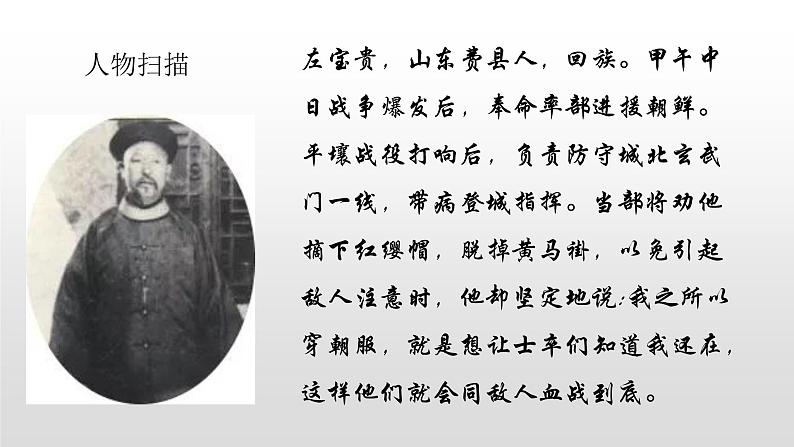 人物扫描
左宝贵，山东费县人，回族。甲午中
日战争爆发后，奉命率部进援朝鲜。
平壤战役打响后，负责防守城北玄武
门一线，带病登城指挥。当部将劝他
摘下红缨帽，脱掉黄马褂，以免引起
敌人注意时，他却坚定地说:我之所以
穿朝服，就是想让士卒们知道我还在，
这样他们就会同敌人血战到底。